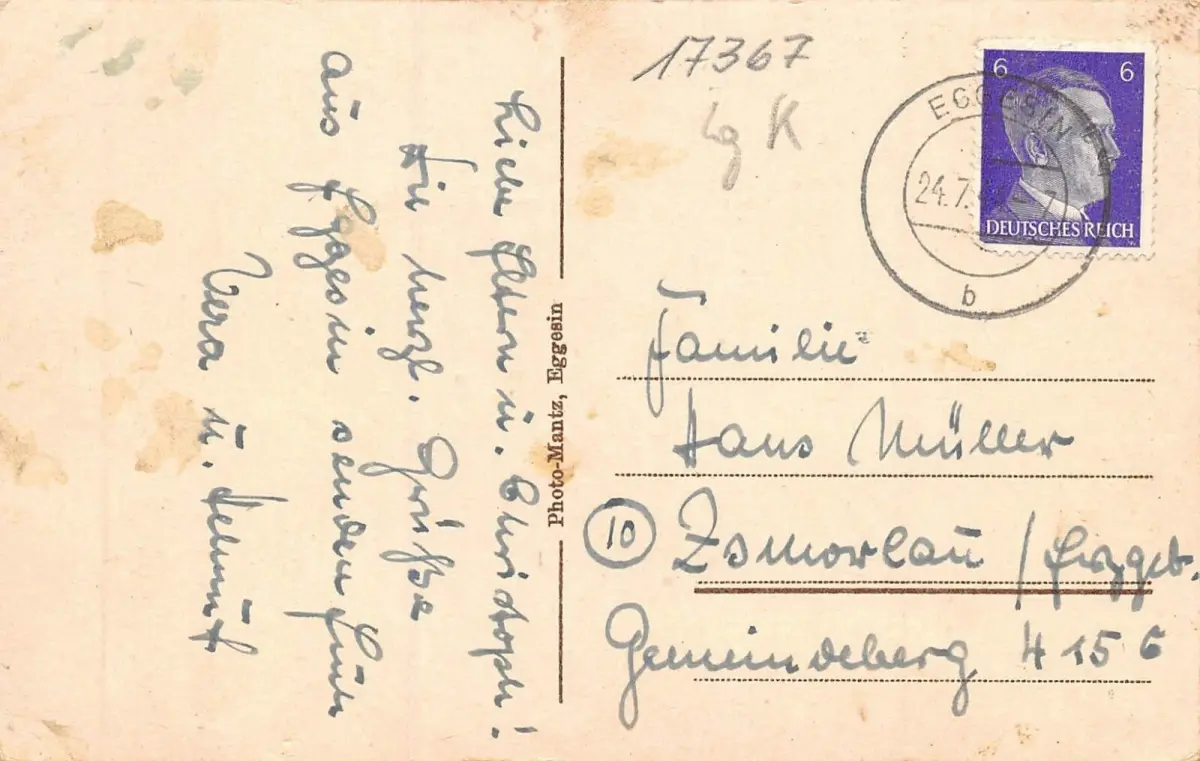 Liebe Eltern u. Christoph!
Die herzl. Grüße
aus Eggesin senden Euch
Vera u. Helmut
Photo-Mantz, Eggesin
17367
K
6 6
DEUTSCHES REICH
EGGESIN
24.7.
b
Familie
Hans Müller
10 Zsmorlau / Erzgeb.
Gemeindeberg 415 G